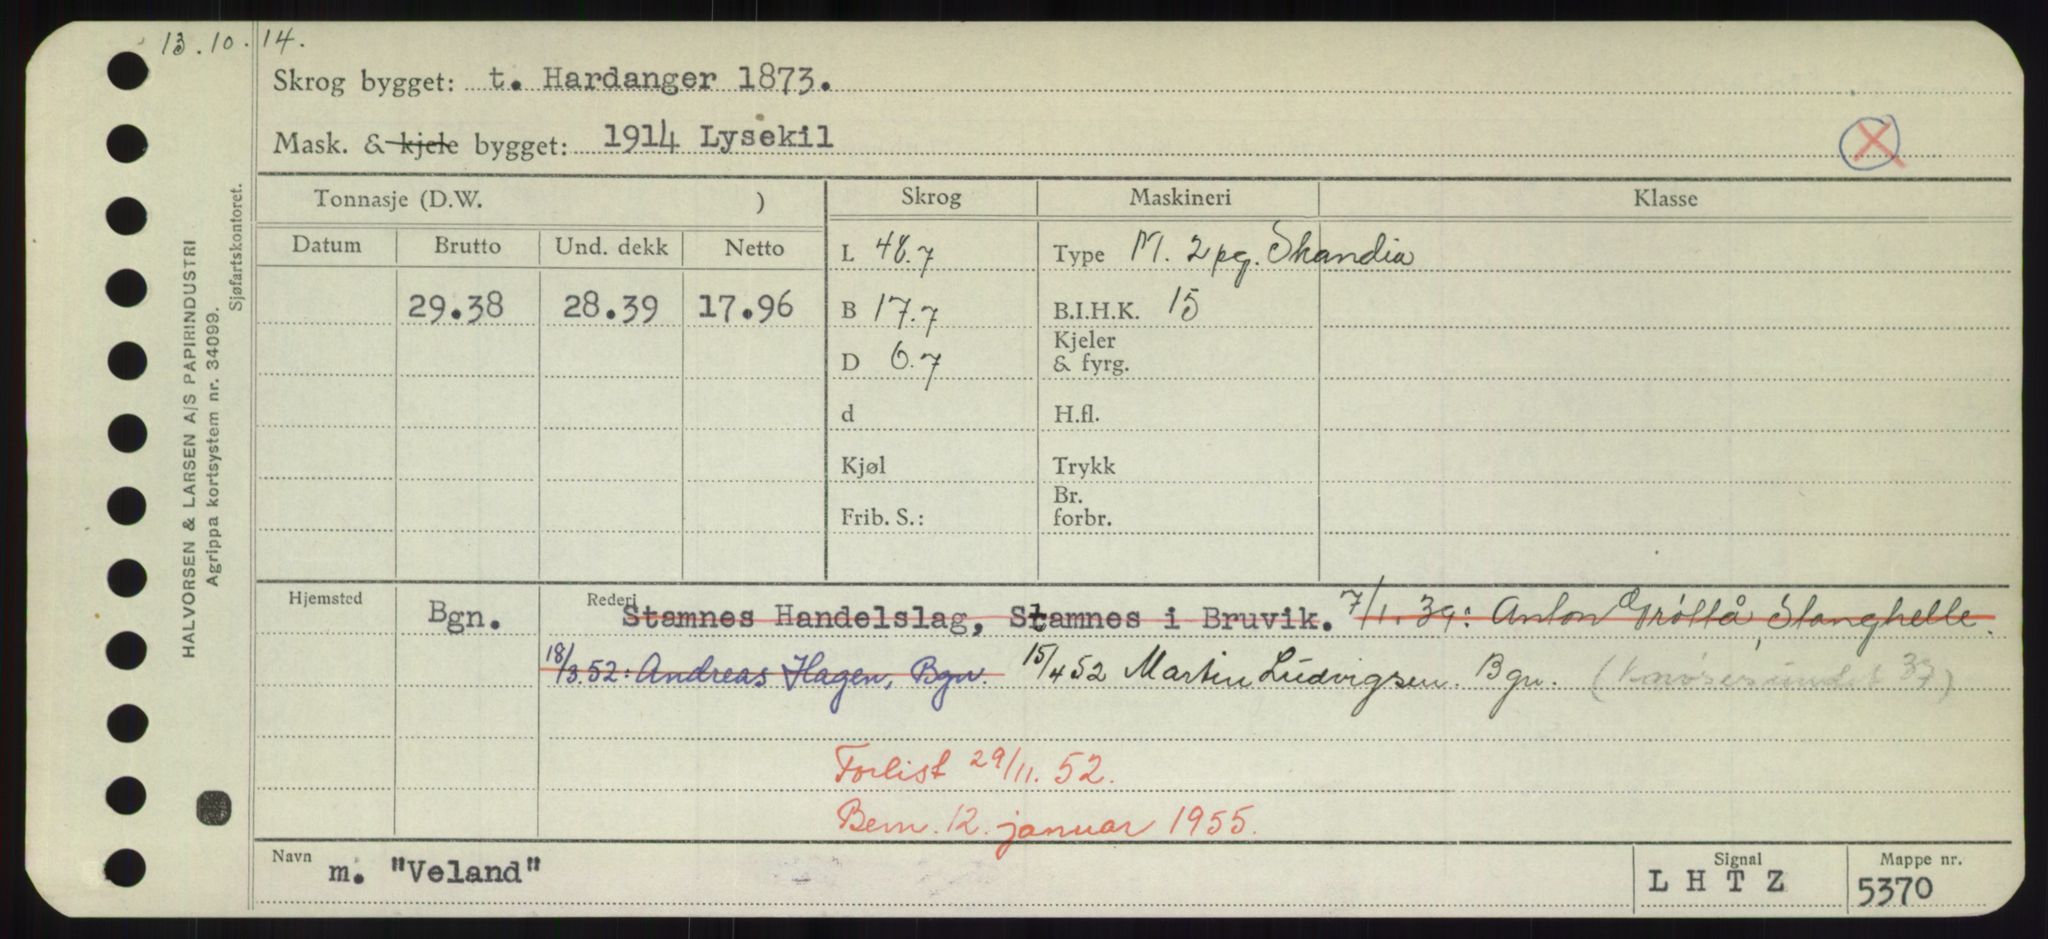 13.10.14.
Skrog bygget: t. Hardanger 1873.
Mask. & kjele bygget: 1914 Lysekil
HALVORSEN & LARSEN A/S PAPIRINDUSTRI
Agrippa kortsystem nr. 34099.
Sjøfartskontoret.
Tonnasje (D.W. ) Skrog Maskineri Klasse
Datum Brutto Und. dekk Netto L 48.7 Type M. 2 pg. Skandia
29.38 28.39 17.96 B 17.7 B.I.H.K. 15
D 6.7 Kjeler & fyrg.
d H.fl.
Kjøl Trykk
Frib. S.: Br. forbr.
Hjemsted Bgn. Rederi Stamnes Handelslag, Stamnes i Bruvik. 7/1.39: Anton Trøllå, Stanghelle.
18/3.52: Andreas Hagen, Bgn. 15/4 52 Martin Ludvigsen. Bgn.
Forlist 29/11.52.
Bem. 12. januar 1955.
Navn m. "Veland" Signal LHTZ Mappe nr. 5370